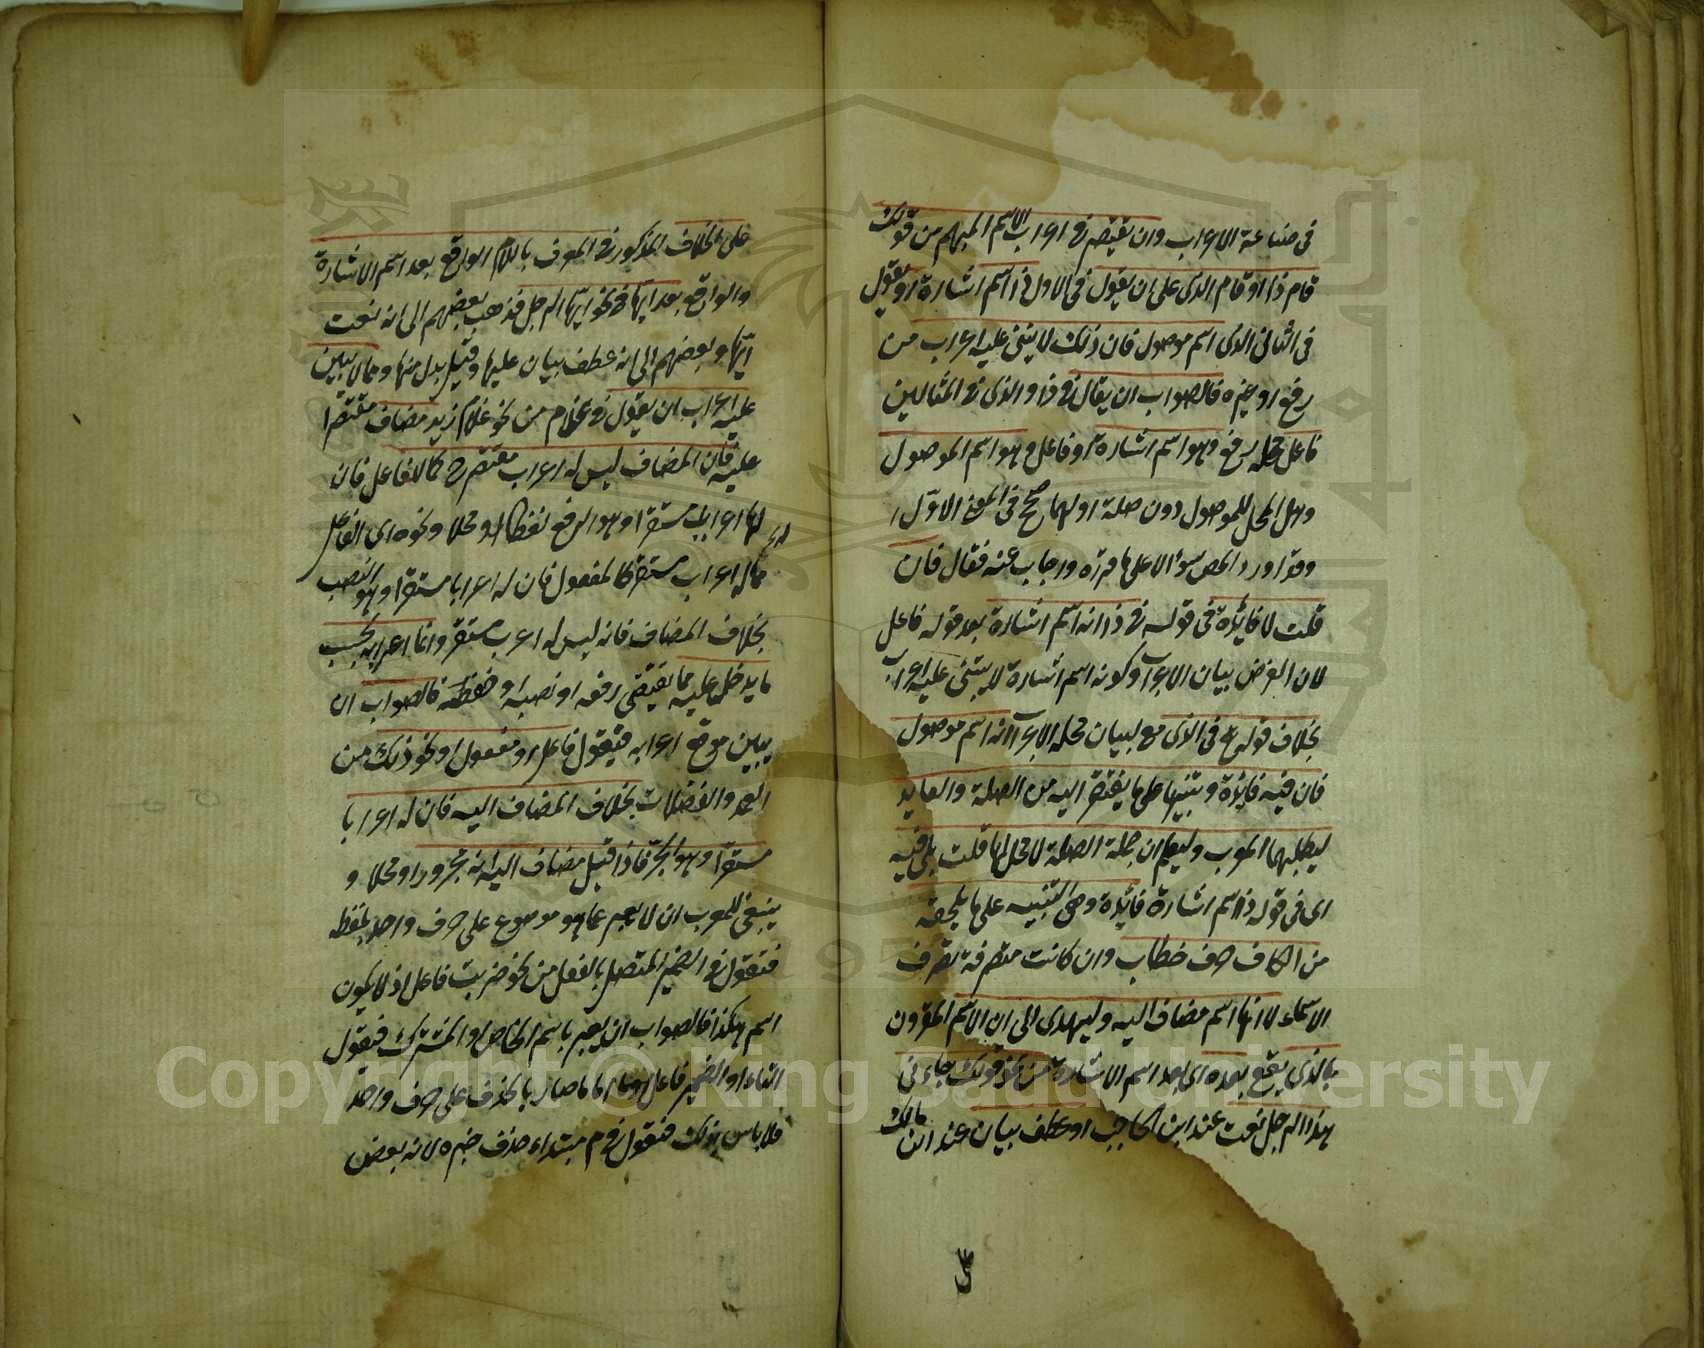 في صناعة الاعراب وان يقتصر في اعراب الاسم المبهم من قولك
قام ذا او قام الذي على ان يقول في الاول ذا اسم اشارة او يقول
في الثاني الذي اسم موصول فان ذلك لا يبنى عليه اعراب من
رفع او غيره فالصواب ان يقال في ذا والذي في المثالين
فاعل محله رفع وهو اسم اشارة او فاعل وهو اسم الموصول
وهل المحل للموصول دون صلة او لهما صح في المغني الاول
وقد اورد المص سؤالا على ما قرره واجاب عنه فقال فان
قلت لا فائدة في قوله في ذا انه اسم اشارة بعد قوله فاعل
لان الغرض بيان الاعراب وكونه اسم اشارة لا يبتنى عليه اعراب
بخلاف قوله في الذي مع لبيان محله الاعراب انه اسم موصول
فان فيه فائدة وتنبيها على ما يفتقر اليه من الصلة والعايد
ليطلبهما المعرب وليعلم ان جملة الصلة لا محل لها قلت بلى فيه
اى في قوله ذا اسم اشارة فائدة وهي التنبيه على ما يلحقه
من الكاف حرف خطاب وان كانت متصرفة تصرف
الاسماء لا انها اسم مضاف اليه وليهدى الى ان الاسم المقرون
بالذي يقع بعده اى بعد اسم الاشارة من نحو قولك جاءني
هذا الرجل نعت عند ابن الحاجب او عطف بيان عند ابن مالك
على
على الخلاف المذكور في المعرف باللام الواقع بعد اسم الاشارة
والواقع بعد ايها في نحو ايها الرجل فذهب بعضهم الى انه نعت
ايها وبعضهم الى انه عطف بيان عليها وقيل بدل منها ومما لا يبين
عليه اعراب ان يقول في غلام من نحو غلام زيد مضاف مقتصرا
عليه فان المضاف ليس له اعراب مستقر كالفاعل فان
له اعرابا مستقرا وهو الرفع لفظا او محلا ونحوه اى الفاعل
مما له اعراب مستقر كالمفعول فان له اعرابا مستقرا وهو النصب
بخلاف المضاف فانه ليس له اعراب مستقر وانما اعرابه بحسب
ما يدخل عليه مما يقتضي رفعه او نصبه او خفضه فالصواب ان
يبين موقع اعرابه فيقول فاعل او مفعول او نحو ذلك من
العمد والفضلات بخلاف المضاف اليه فان له اعرابا
مستقرا وهو الجر فاذا قيل مضاف اليه انه مجرور او محلا و
ينبغي للمعرب ان لا يعبر عما هو موضوع على حرف واحد بلفظه
فتقول في الضمير المتصل بالفعل من نحو ضربت فاعل اذ لا يكون
اسم هكذا فالصواب ان يعبر باسم الخاص او المشترك فيقول
التاء او الضمير فاعل واما ما صار بالحذف على حرف واحد
فلا باس بذلك فتقول في م مبتداء حذف خبره لانه بعض
Copyright © King Saud University
1957